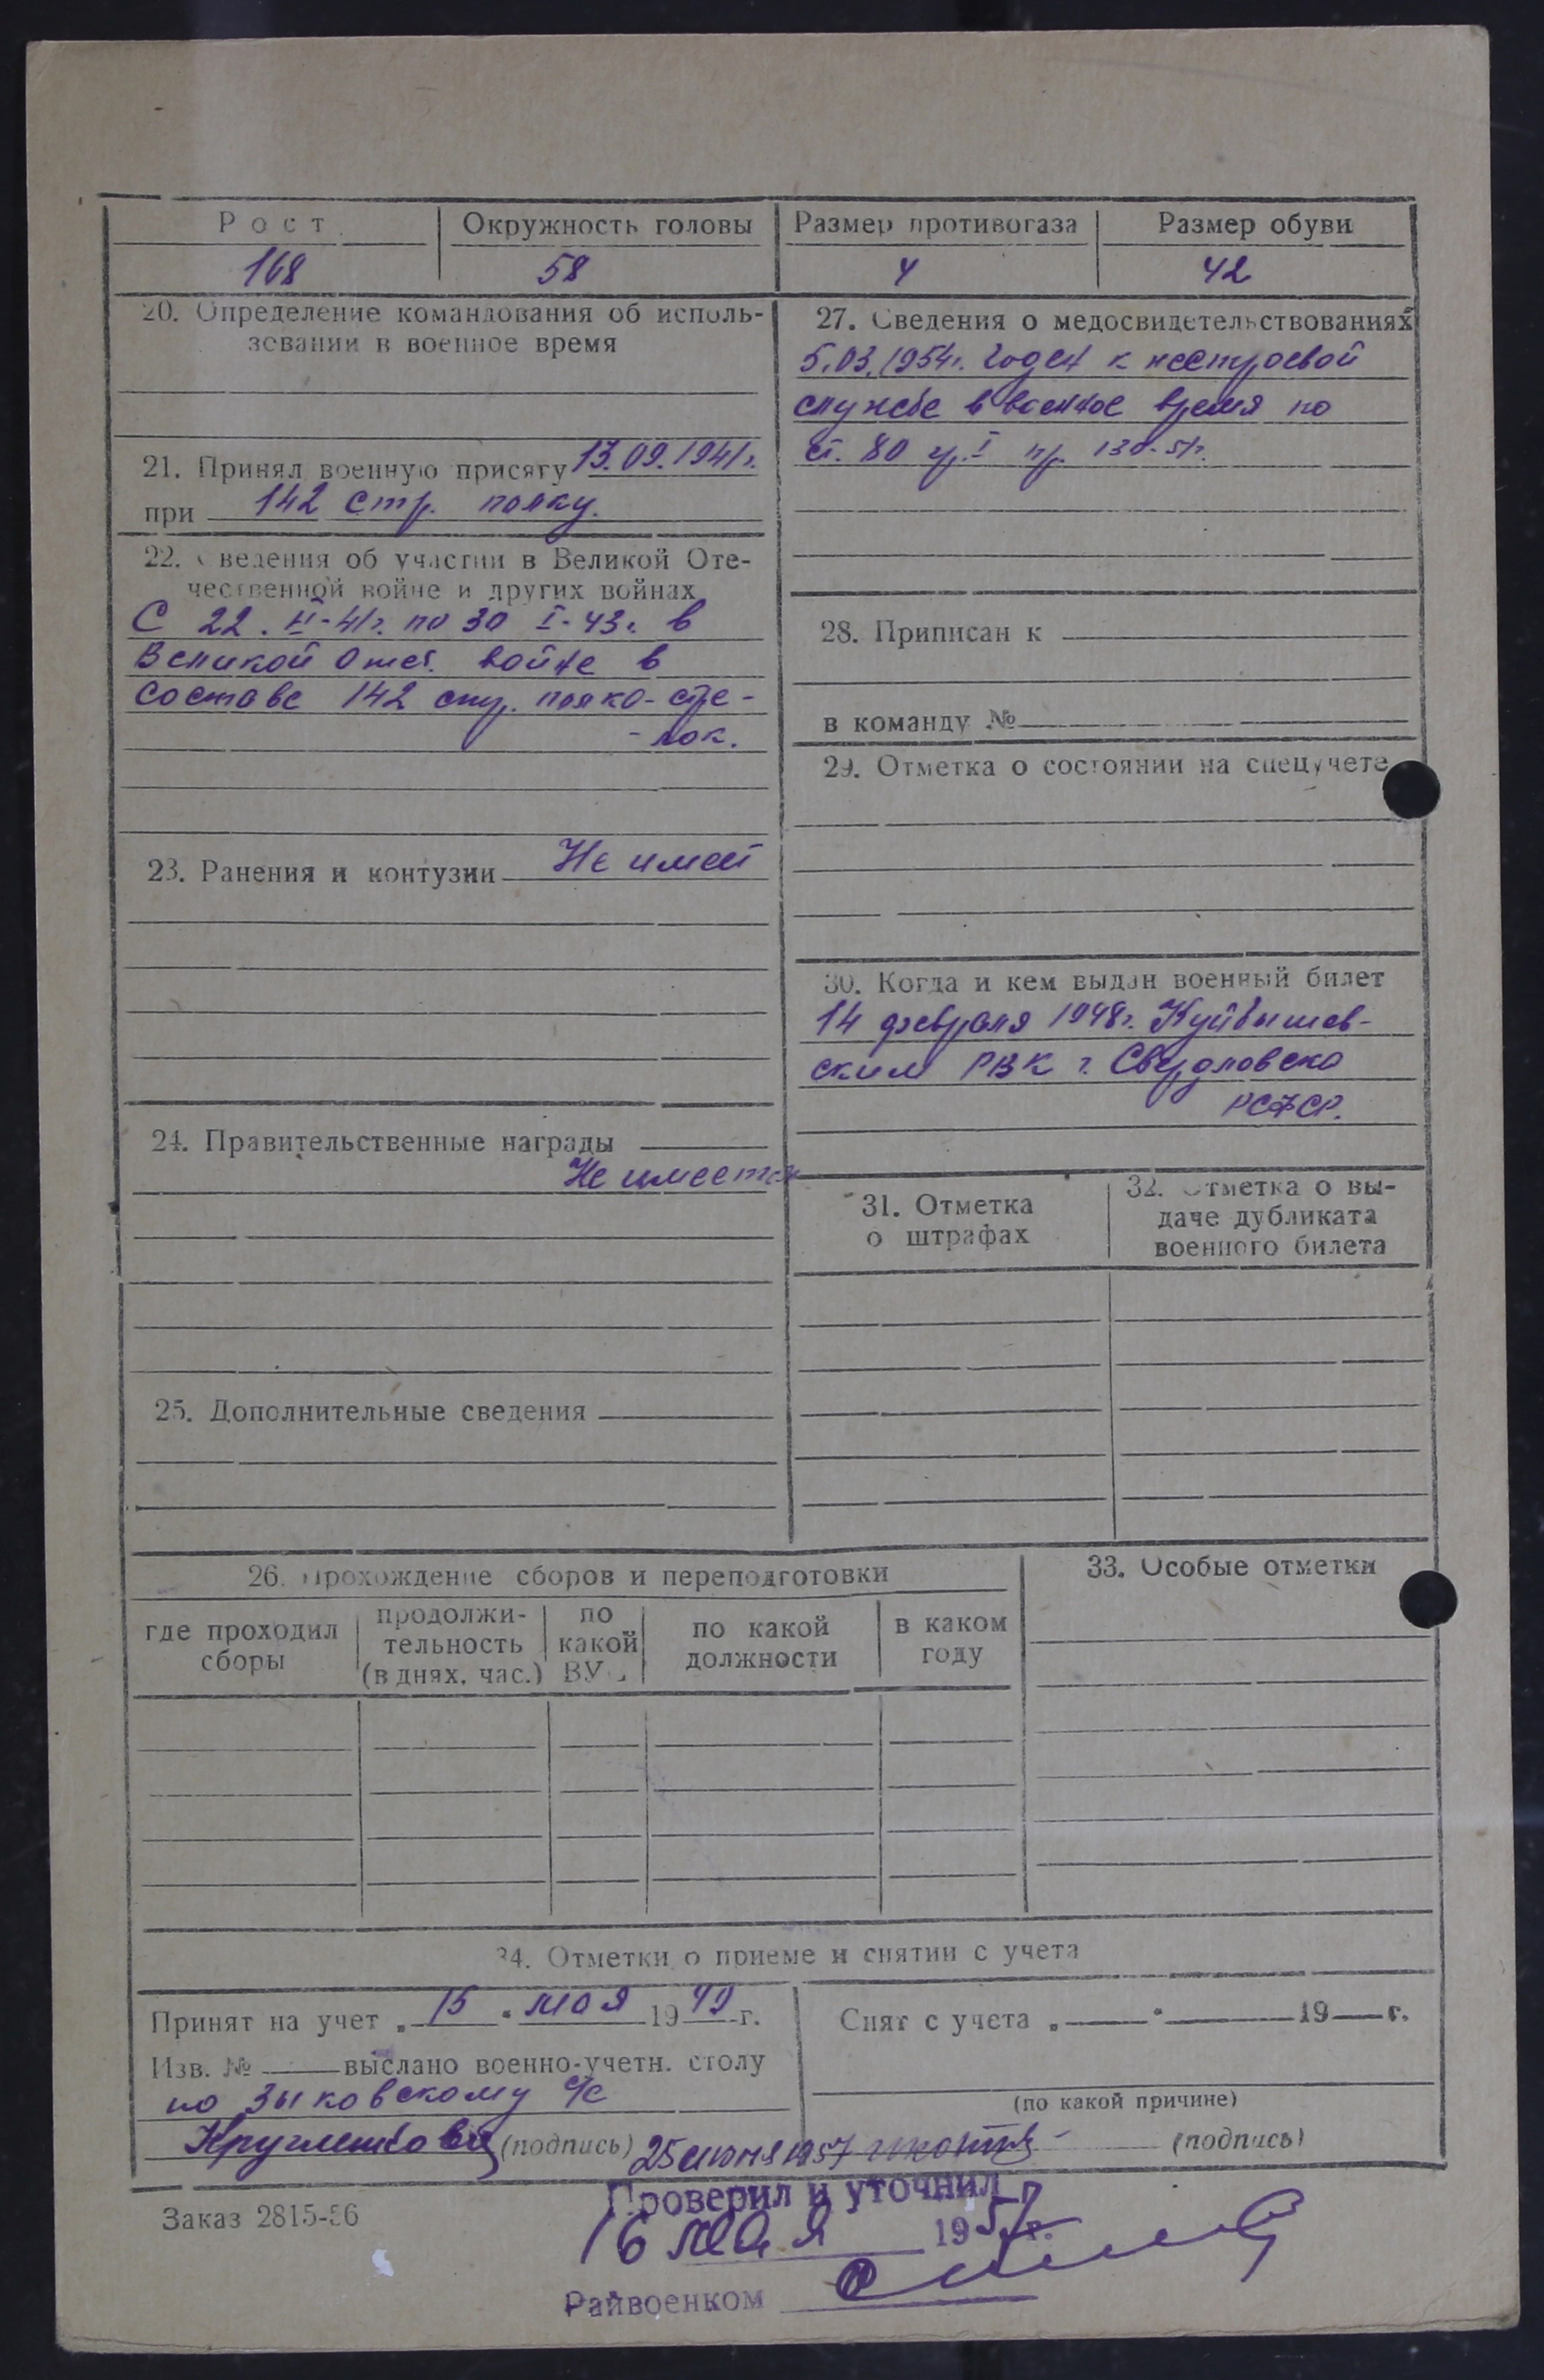 Рост
Окружность головы
Размер противогаза
Размер обуви
168
58
4
42
20. Определение командования об исполь-
зовании в военное время
21. Принял военную присягу 13.09.1941г.
при 142 стр. полку.
22. Сведения об участии в Великой Оте-
чественной войне и других войнах
С 22. -41г. по 30 I-43г. в
Великой Отеч. войне в
составе 142 стр. полка - стре-
- лок.
23. Ранения и контузии Не имеет
24. Правительственные награды
Не имеется
25. Дополнительные сведения
27. Сведения о медосвидетельствованиях
5.03.1954г. Годен к нестроевой
службе в военное время по
ст. 80 гр. I пр. 130-51г.
28. Приписан к
в команду №
29. Отметка о состоянии на спецучете
30. Когда и кем выдан военный билет
14 февраля 1948г. Куйбышев-
ским РВК г. Свердловска
РСФСР.
31. Отметка
о штрафах
32. Отметка о вы-
даче дубликата
военного билета
26. Прохождение сборов и переподготовки
где проходил
сборы
продолжи-
тельность
(в днях, час.)
по
какой
ВУС
по какой
должности
в каком
году
33. Особые отметки
34. Отметки о приеме и снятии с учета
Принят на учет „15" мая 1949 г.
Изв. № выслано военно-учетн. столу
по Зыковскому с/с
(подпись)
25 июня 1957
Снят с учета „ " 19 г.
(по какой причине)
(подпись)
Заказ 2815-56
Проверил и уточнил
16 мая 1957г.
Райвоенком